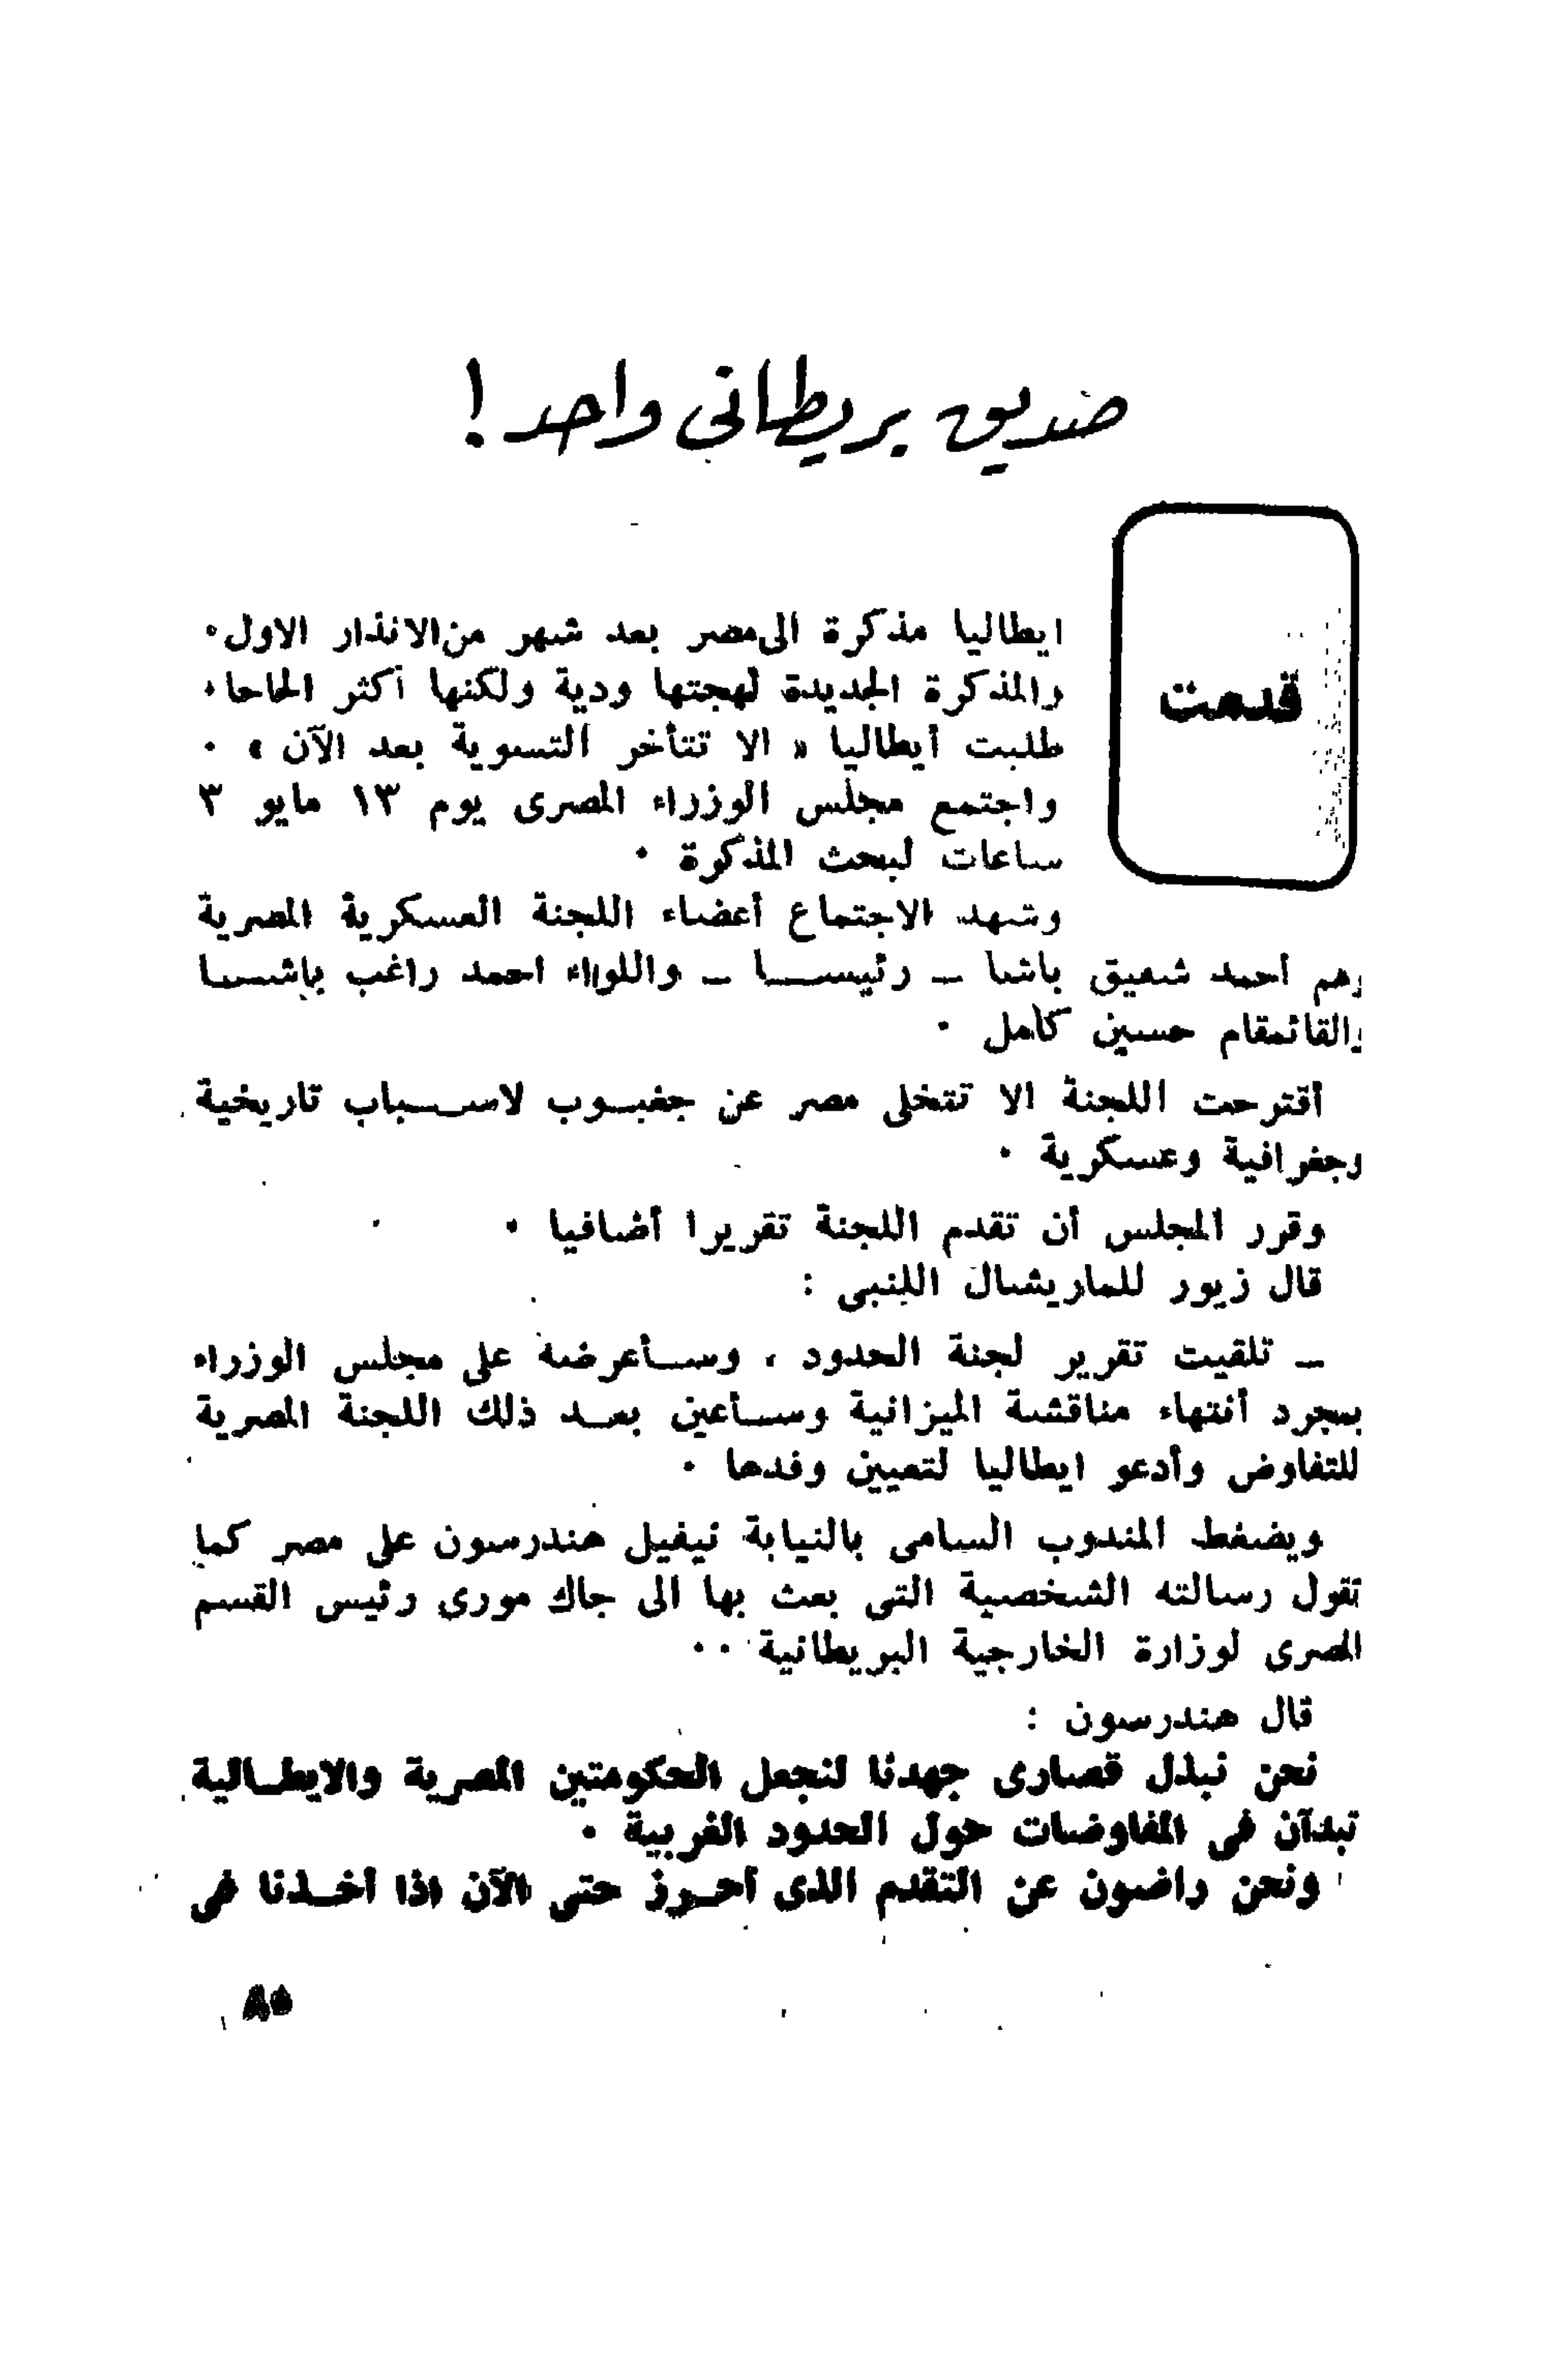 صديق بريطانى واحد !
قدمت
ايطاليا مذكرة الى مصر بعد شهر من الانذار الاول .
والمذكرة الجديدة لهجتها ودية ولكنها أكثر الحاحا .
طلبت أيطاليا « الا تتأخر التسوية بعد الآن » .
واجتمع مجلس الوزراء المصرى يوم ١٣ مايو ٣
ساعات لبحث المذكرة .
وشهد الاجتماع أعضاء اللجنة العسكرية المصرية
وهم أحمد شفيق باشا ــ رئيسا ــ واللواء احمد راغب باشا
والقائمقام حسين كامل .
أقترحت اللجنة الا تتخلى مصر عن جغبوب لاسباب تاريخية
وجغرافية وعسكرية .
وقرر المجلس أن تقدم اللجنة تقريرا أضافيا .
قال زيور للماريشال اللنبى :
ــ تلقيت تقرير لجنة الحدود ، وسأعرضه على مجلس الوزراء
بمجرد أنتهاء مناقشة الميزانية وسأعين بعد ذلك اللجنة المصرية
للتفاوض وأدعو ايطاليا لتعيين وفدها .
ويضغط المندوب السامى بالنيابة نيفيل هندرسون على مصر كما
تقول رسالته الشخصية التى بعث بها الى جاك مورى رئيس القسم
المصرى لوزارة الخارجية البريطانية . .
قال هندرسون :
نحن نبذل قصارى جهدنا لنجعل الحكومتين المصرية والايطالية
تبدآن فى المفاوضات حول الحدود الغربية .
ونحن راضون عن التقدم الذى أحرز حتى الآن اذا أخذنا فى
٨٥